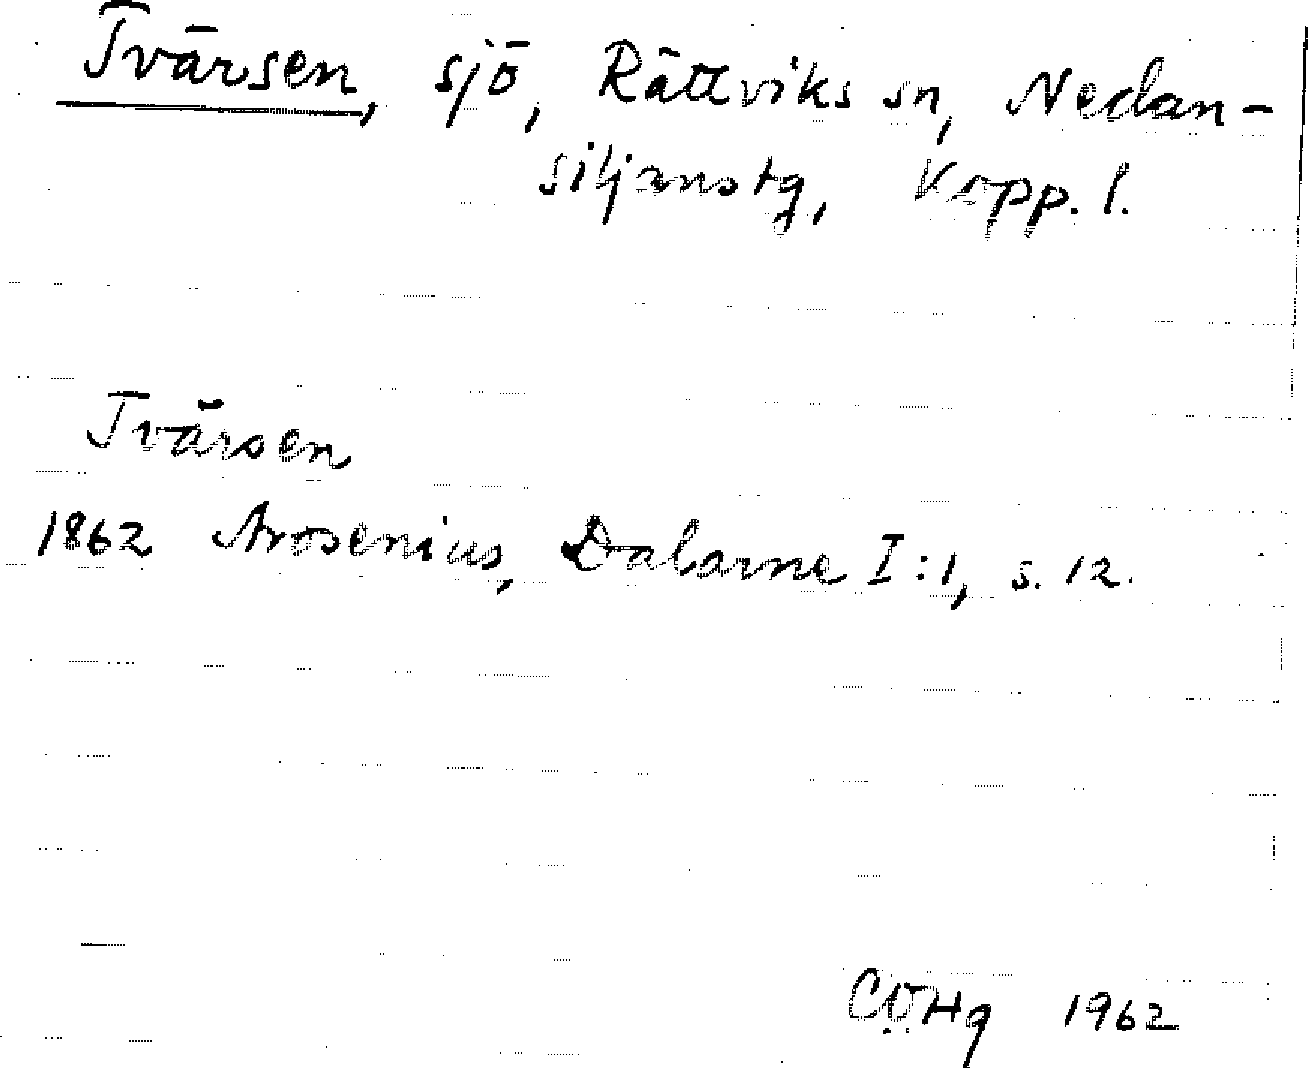 Tvärsen, sjö, Rättviks sn, Nedan-
siljanstg, Kopp. l.
Tvärsen
1862 Arosenius, Dalarne I:1, s. 12.
CÖHg 1962